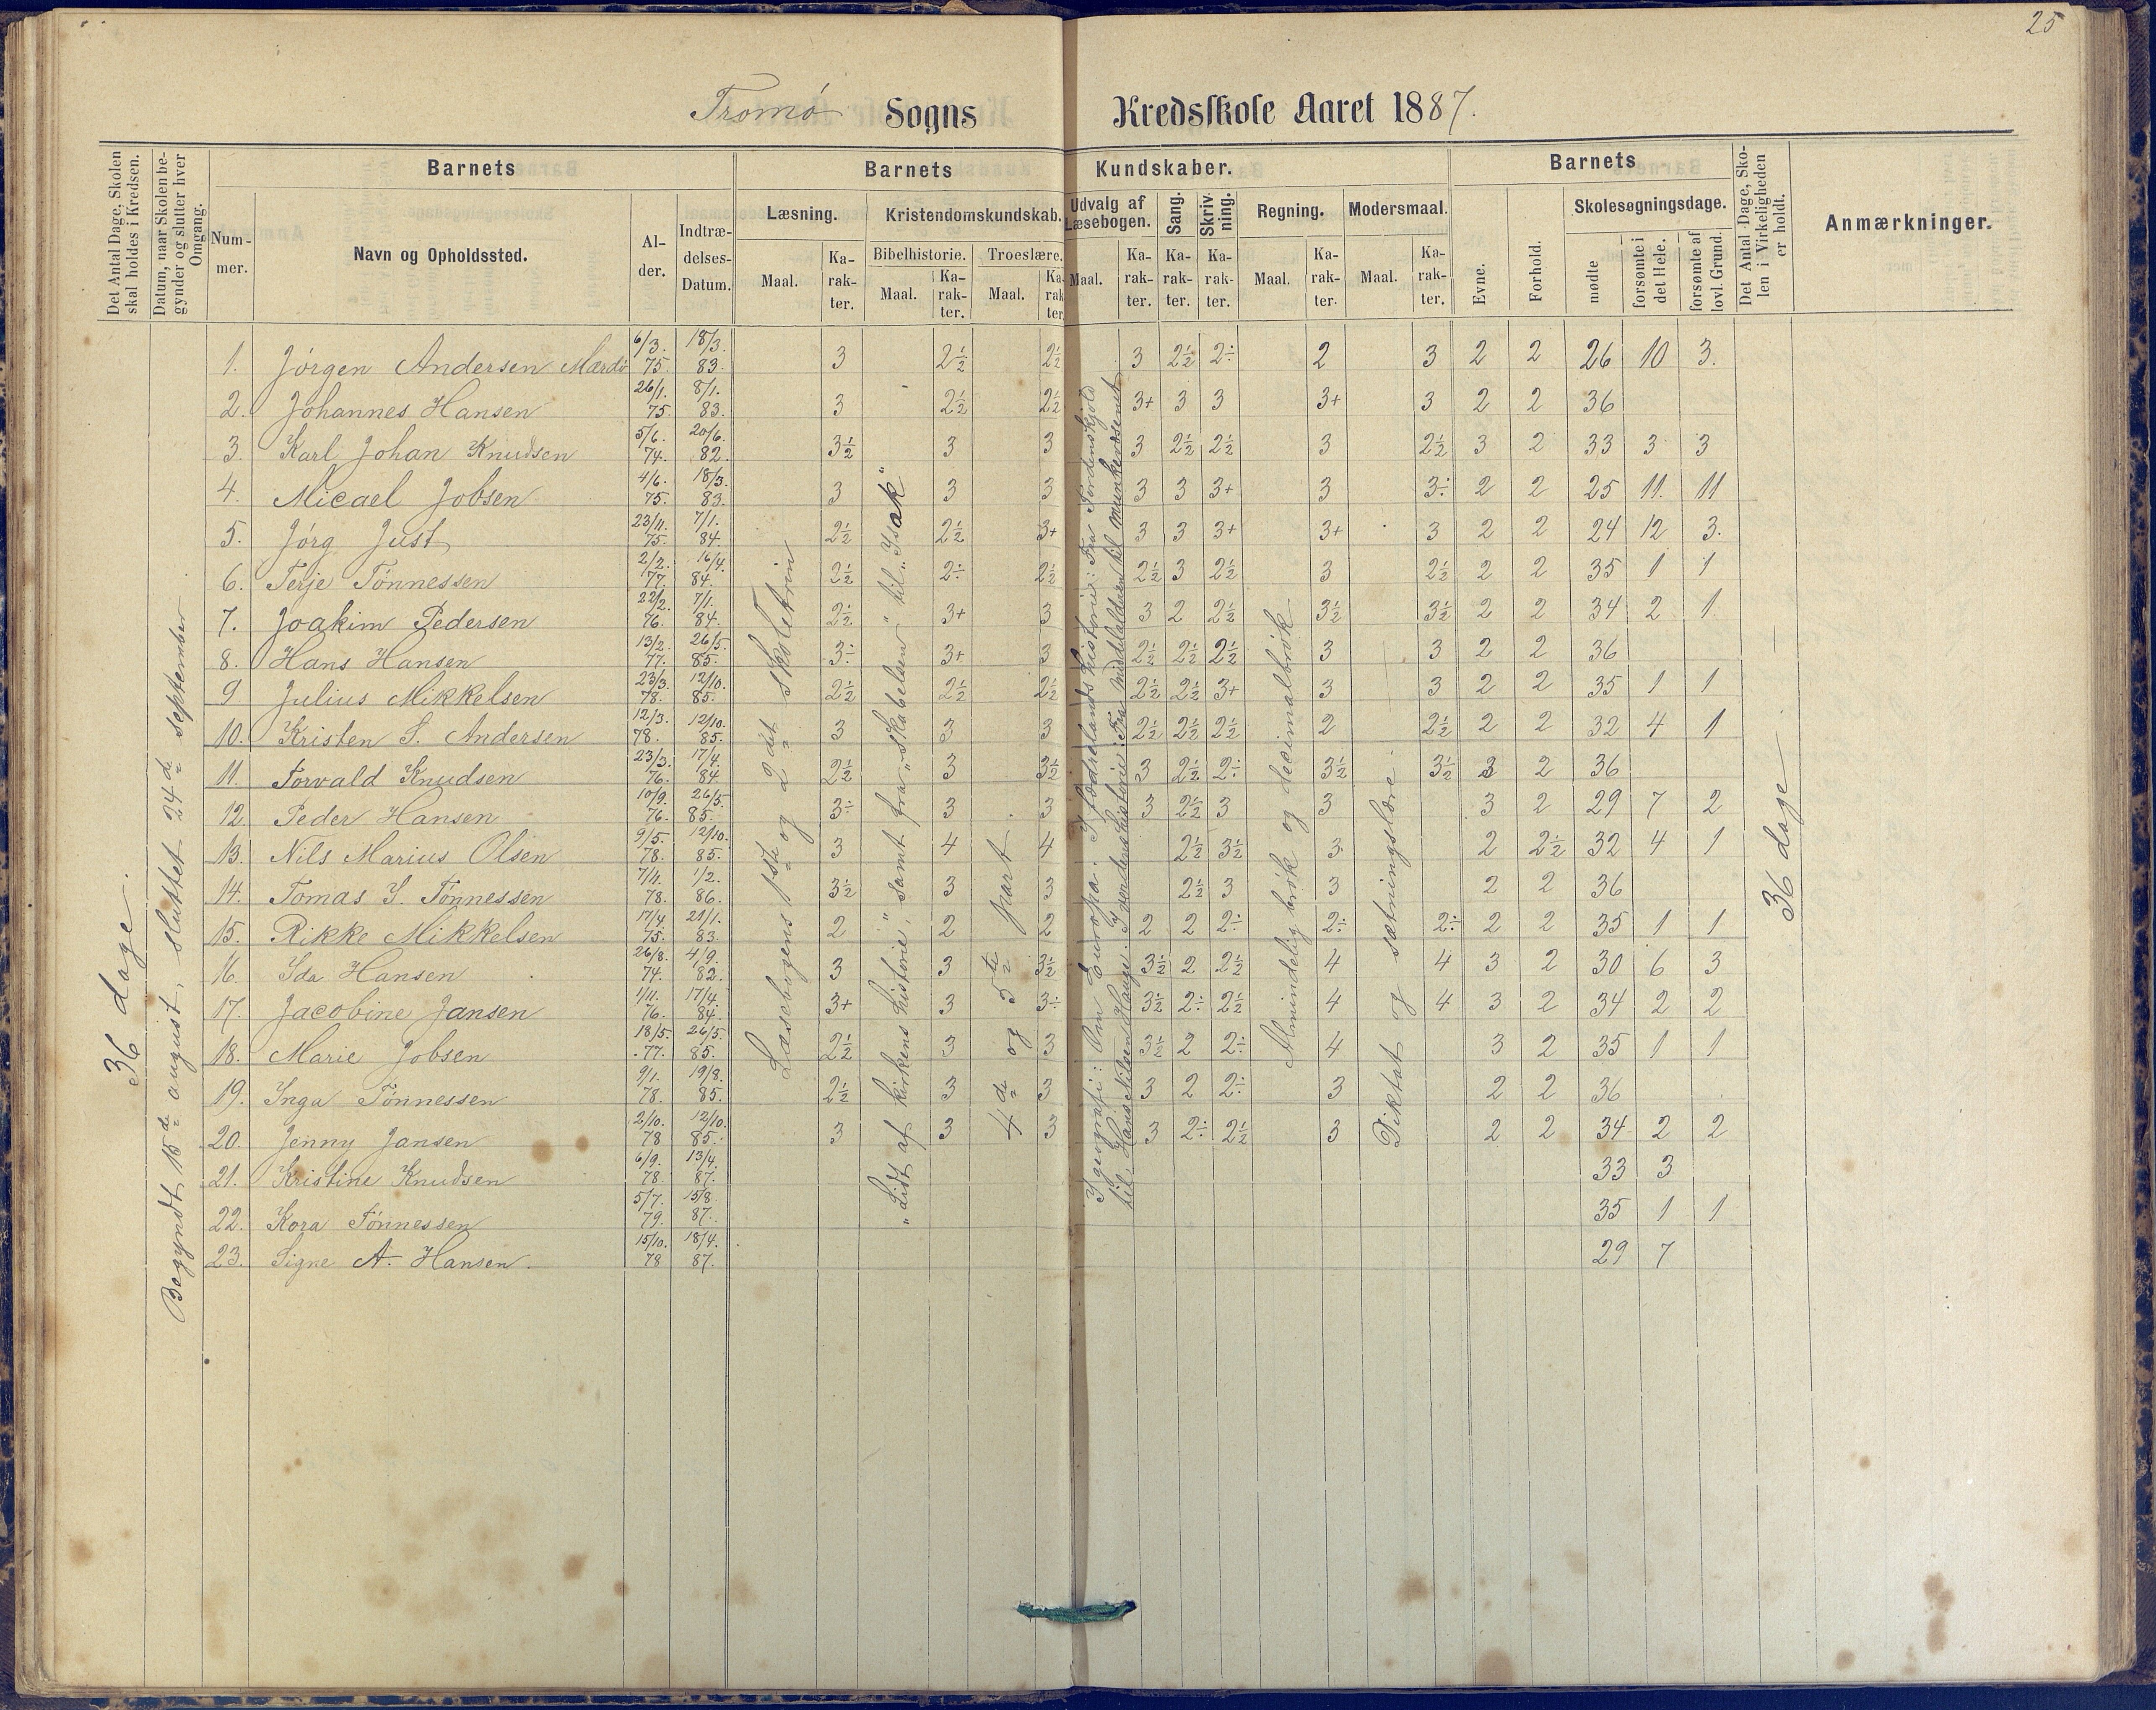 25
Tromø Sogns Kredsskole Aaret 1887.
Det Antal Dage, Skolen skal holdes i Kredsen.
Datum, naar Skolen begynder og slutter hver Omgang.
Barnets
Barnets Kundskaber.
Barnets
Det Antal Dage, Skolen i Virkeligheden er holdt.
Anmærkninger.
Nummer.
Navn og Opholdssted.
Alder.
Indtrædelses-Datum.
Læsning.
Kristendomskundskab.
Udvalg af Læsebogen.
Sang.
Skrivning.
Regning.
Modersmaal.
Evne.
Forhold.
Skolesøgningsdage.
Bibelhistorie.
Troeslære.
Maal. Karakter. Maal. Karakter. Maal. Karakter. Maal. Karakter. Karakter. Karakter. Maal. Karakter. Maal. Karakter.
mødte
forsømte i det Hele.
forsømte af lovl. Grund.
36 dage.
Begyndt 15de august, sluttet 24de september
Læsebogens 1ste og 2det skoletrin
"Lidt af kirkens historie", samt fra "Skabelsen" til "Isak"
4de og 5te part
I geografi: Om Europa. I fædrelandshistorie: Fra Tordenskjold
til Hans Nilsen Hauge. I verdenshistorie: Fra middelalderen til munkevæsenet
Almindelig brøk og decimalbrøk
Diktat og sætningslære.
36 dage
1. Jørgen Andersen Mærdø 6/3. 75. 18/3. 83. 3 2½ 2½ 3 2½ 2÷ 2 3 2 2 26 10 3.
2. Johannes Hansen 26/1. 75. 8/1. 83. 3 2½ 2½ 3+ 3 3 3+ 3 2 2 36
3. Karl Johan Knudsen 5/6. 74. 20/6. 82. 3½ 3 3 3 2½ 2½ 3 2½ 3 2 33 3 3
4. Micael Jobsen 4/6. 75. 18/3. 83. 3 3 3 3 3 3+ 3 3÷ 2 2 25 11. 11
5. Jørg Just 23/11. 75. 7/1. 84. 2½ 2½ 3+ 3 3 3+ 3+ 3 2 2 24 12 3.
6. Terje Tønnessen 2/2. 77. 16/4. 84. 2½ 2÷ 2½ 2½ 3 2½ 3 2½ 2 2 35 1 1
7. Joakim Pedersen 22/2. 76. 7/1. 84. 2½ 3+ 3 3 2 2½ 3½ 3½ 2 2 34 2 1.
8. Hans Hansen 13/2. 77. 26/5. 85. 3÷ 3+ 3 2½ 2½ 2½ 3 3 2 2 36
9 Julius Mikkelsen 23/3. 78. 12/10. 85. 2½ 2½ 2½ 2½ 2½ 3+ 3 3 2 2 35 1 1
10. Kristen S. Andersen 12/3. 78. 12/10. 85. 3 3 3 2½ 2½ 2½ 2 2½ 2 2 32 4 1
11. Torvald Knudsen 23/3. 76. 17/4. 84 2½ 3 3½ 3 2½ 2÷ 3½ 3½ 3 2 36
12. Peder Hansen 10/9. 76. 26/5. 85. 3÷ 3 3 3 2½ 3 3 3 2 29 7 2
13. Nils Marius Olsen 9/5. 78. 12/10. 85. 3 4 4 2½ 3½ 3. 2 2½ 32 4 1
14. Tomas S. Tønnessen 7/4. 78. 1/2. 86. 3½ 3 3 2½ 3 3 2 2 36
15. Rikke Mikkelsen 17/4 75. 21/1. 83. 2 2 2 2 2 2÷ 2÷ 2÷ 2 2 35 1 1
16. Ida Hansen 26/8. 74. 4/9. 82. 3 3 3½ 3½ 2 2½ 4 4 3 2 30 6 3
17. Jacobine Jansen 1/11. 76. 17/4. 84. 3+ 3 3÷ 3½ 2÷ 2½ 4 4 3 2 34 2 2
18. Marie Jobsen 18/5. 77. 26/5. 85. 2½ 3 3 3½ 2 2÷ 4 3 2 35 1 1
19. Inga Tønnessen 9/1. 78. 19/8. 85. 2½ 3 3 3 2 2÷ 3 2 2 36
20. Jenny Jansen 2/10. 78 12/10. 85. 3 3 3 3 2÷ 2½ 3 2 2 34 2 2
21. Kristine Knudsen 6/9. 78 13/4. 87. 33 3
22. Kora Tønnessen 5/7. 79. 15/8. 87. 35 1 1
23. Signe A. Hansen. 15/10. 78 18/4. 87. 29 7